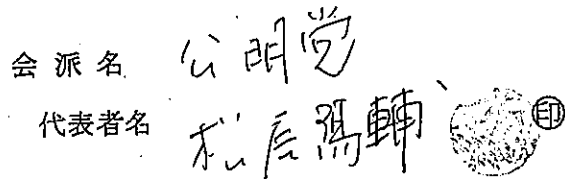 会派名 公明党
代表者名 松辰陽輔 ㊞